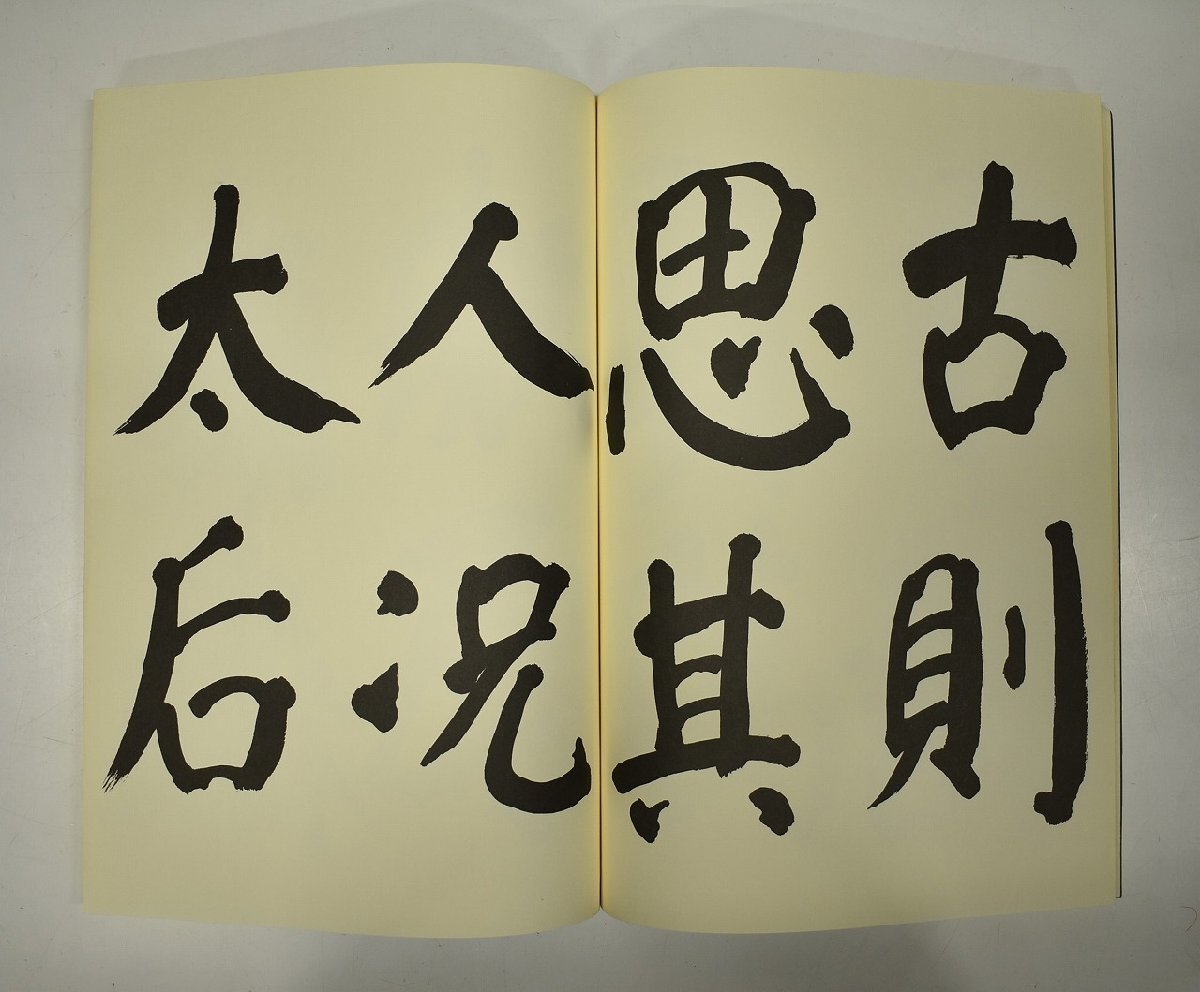 古則
思其
人况
太后